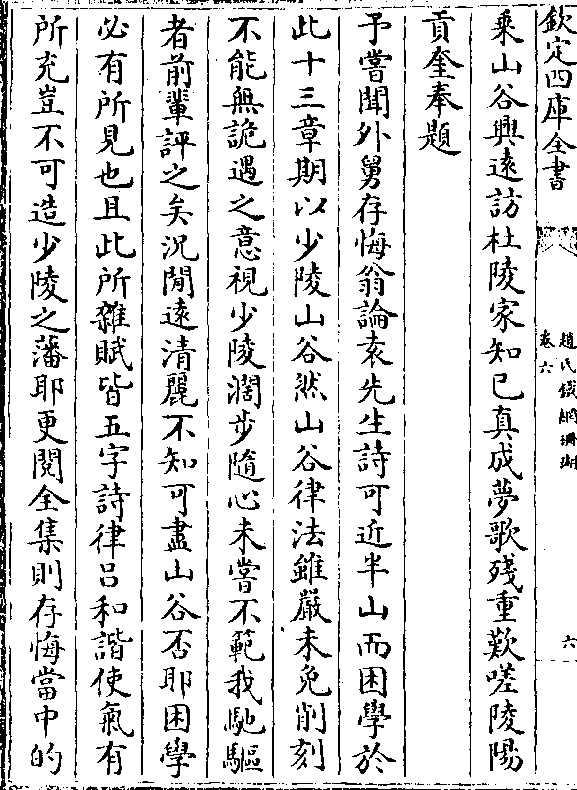 欽定四庫全書
趙氏鐵網珊瑚
卷六
六
乘山谷興遠訪杜陵家知已真成夢歌殘重歎嗟陵陽
貢奎奉題
予嘗聞外舅存悔翁論袁先生詩可近半山而困學於
此十三章期以少陵山谷然山谷律法雖嚴未免削刻
不能無詭遇之意視少陵濶步隨心未嘗不範我馳驅
者前輩評之矣況閒遠清麗不知可盡山谷否耶困學
必有所見也且此所雜賦皆五字詩律吕和諧使氣有
所充豈不可造少陵之藩耶更閱全集則存悔當中的